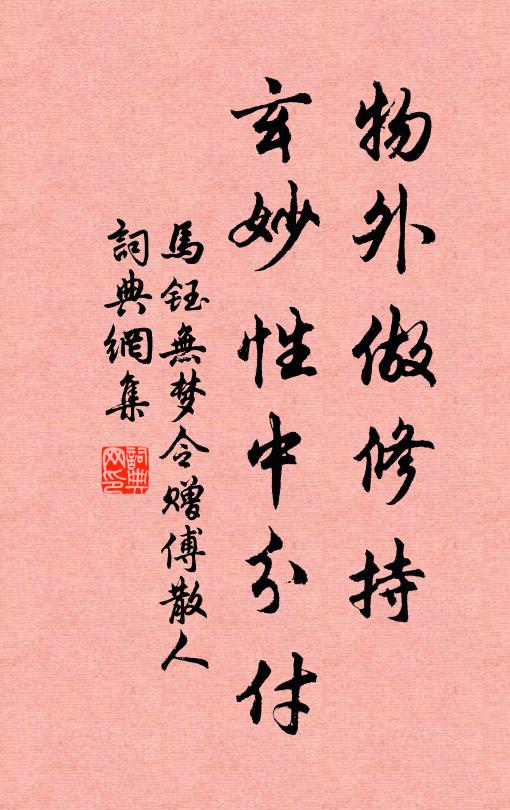 物外做修持
玄妙性中分付
馬鈺無梦令赠傅散人
詞典網集
詞典网印